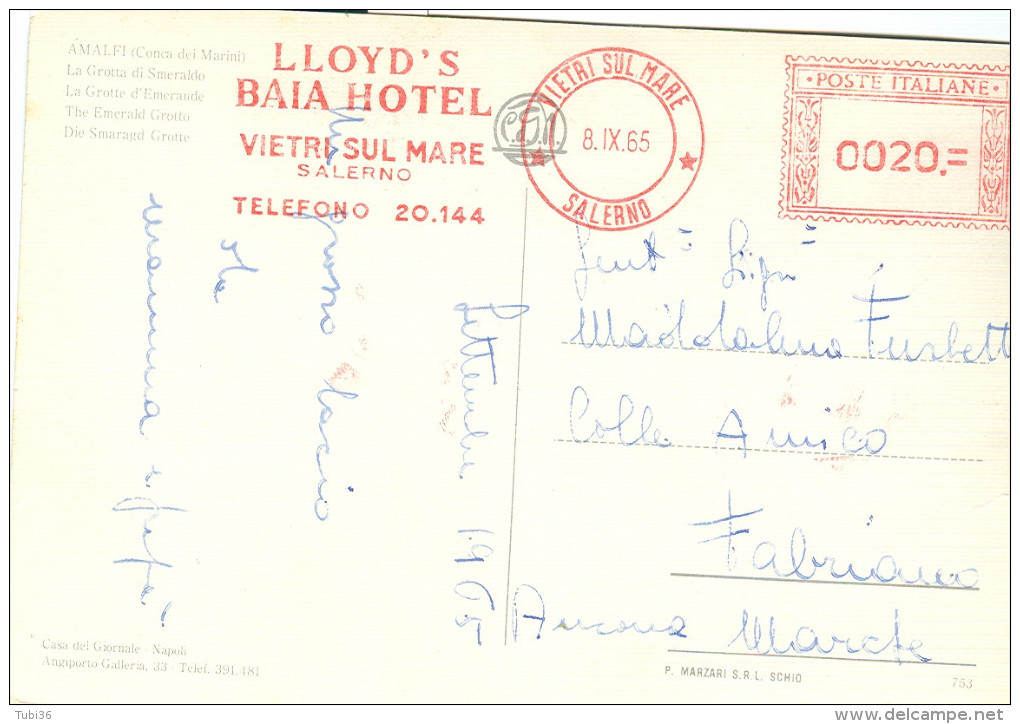 AMALFI (Conca dei Marini)
La Grotta di Smeraldo
La Grotte d'Emeraude
The Emerald Grotto
Die Smaragd Grotte
LLOYD'S
BAIA HOTEL
VIETRI SUL MARE
SALERNO
TELEFONO 20.144
VIETRI SUL MARE
8.IX.65
SALERNO
POSTE ITALIANE
0020.=
Un grosso bacio
da
mamma e papà
Settembre 1965
Gent Sig
Maddalena
Colle Amico
Fabriano
Ancona Marche
Casa del Giornale - Napoli
Angiporto Galleria, 33 - Telef. 391.481
P. MARZARI S.R.L. SCHIO
753
Tubi36
www.delcampe.net